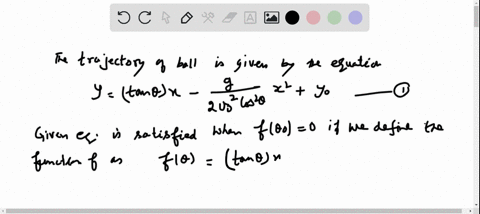 The trajectory of ball is given by the equation
y = (tanθ)x - g/(2v0² cos²θ) x² + y0 —— ①
Given eq. is satisfied when f(θ0) = 0 if we define the
function f as f(θ) = (tanθ)x